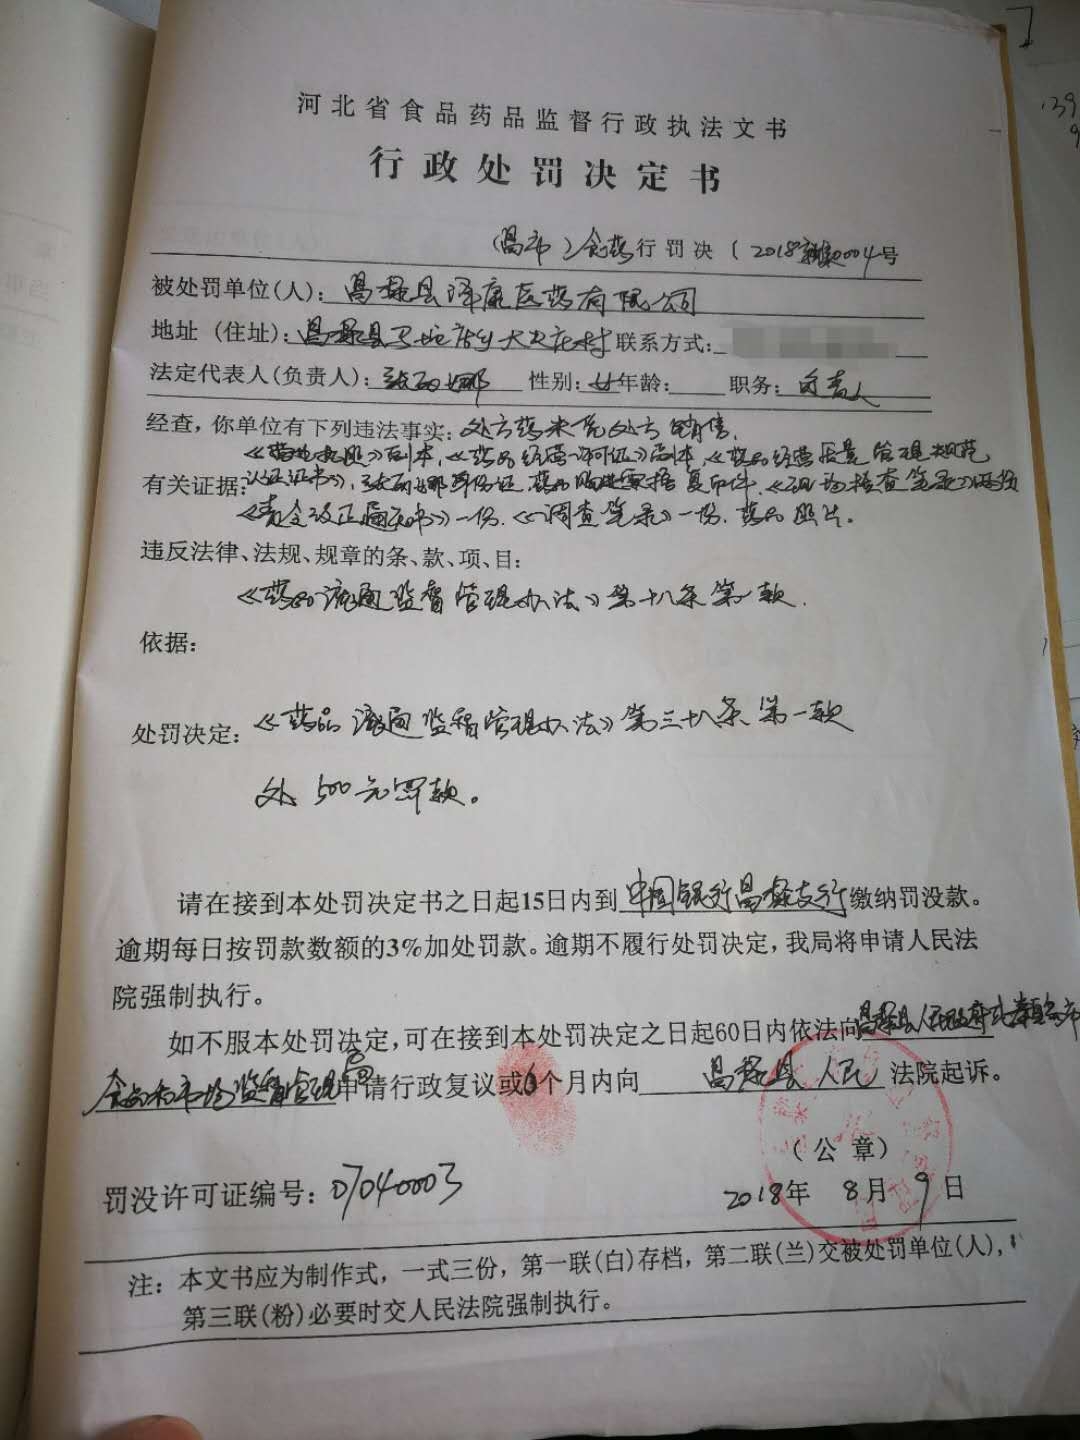 河北省食品药品监督行政执法文书
行政处罚决定书
(昌市)食药行罚决(2018)0004号
被处罚单位(人): 昌黎县泽康医药有限公司
地址 (住址): 昌黎县马坨店乡大 庄村 联系方式:
法定代表人(负责人): 张丽娜 性别: 女 年龄: 职务: 负责人
经查,你单位有下列违法事实: 处方药未凭处方销售.
《营业执照》副本,《药品经营许可证》副本,《药品经营质量管理规范
有关证据: 认证证书》,张丽娜身份证,药品购进票据复印件,《现场检查笔录》两份
《责令改正通知书》一份,《调查笔录》一份.药品照片.
违反法律、法规、规章的条、款、项、目:
《药品流通监督管理办法》第十八条第一款.
依据:
处罚决定: 《药品流通监督管理办法》第三十八条第一款
处500元罚款。
请在接到本处罚决定书之日起15日内到中国银行昌黎支行缴纳罚没款。
逾期每日按罚款数额的3%加处罚款。逾期不履行处罚决定,我局将申请人民法
院强制执行。
如不服本处罚决定,可在接到本处罚决定之日起60日内依法向昌黎县人民政府或秦皇岛市
食品和市场监督管理局申请行政复议或6个月内向 昌黎县人民 法院起诉。
(公 章)
罚没许可证编号: 07040003
2018年 8月 9日
注: 本文书应为制作式,一式三份,第一联(白)存档,第二联(兰)交被处罚单位(人),
第三联(粉)必要时交人民法院强制执行。